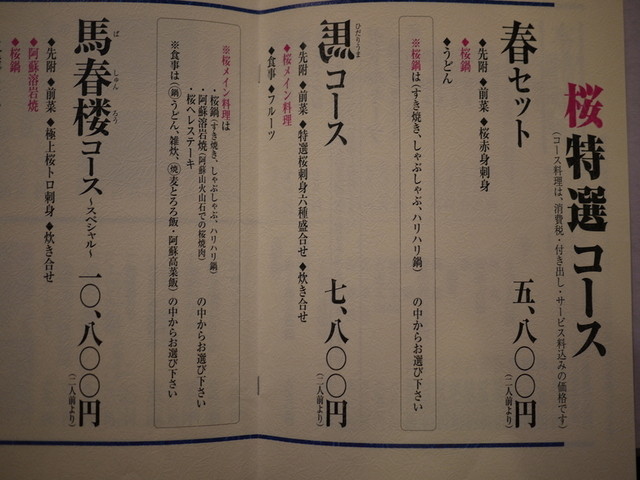 桜特選コース
(コース料理は、消費税・付き出し・サービス料込みの価格です)
春セット 五、八〇〇円(二人前より)
◆先附 ◆前菜 ◆桜赤身刺身
◆桜鍋
◆うどん
※桜鍋は(すき焼き、しゃぶしゃぶ、ハリハリ鍋) の中からお選び下さい
ひだりうま
コース 七、八〇〇円(二人前より)
◆先附 ◆前菜 ◆特選桜刺身六種盛合せ ◆炊き合せ
◆桜メイン料理
◆食事 ◆フルーツ
※桜メイン料理は
・桜鍋(すき焼き、しゃぶしゃぶ、ハリハリ鍋)
・阿蘇溶岩焼(阿蘇山火山石での桜焼肉) の中からお選び下さい
・桜ヘレステーキ
※食事は(鍋)うどん、雑炊、(焼)麦とろろ飯・阿蘇高菜飯) の中からお選び下さい
馬春楼コース～スペシャル～ 一〇、八〇〇円(二人前より)
ば しゅん ろう
◆先附 ◆前菜 ◆極上桜トロ刺身 ◆炊き合せ
◆阿蘇溶岩焼
◆桜鍋